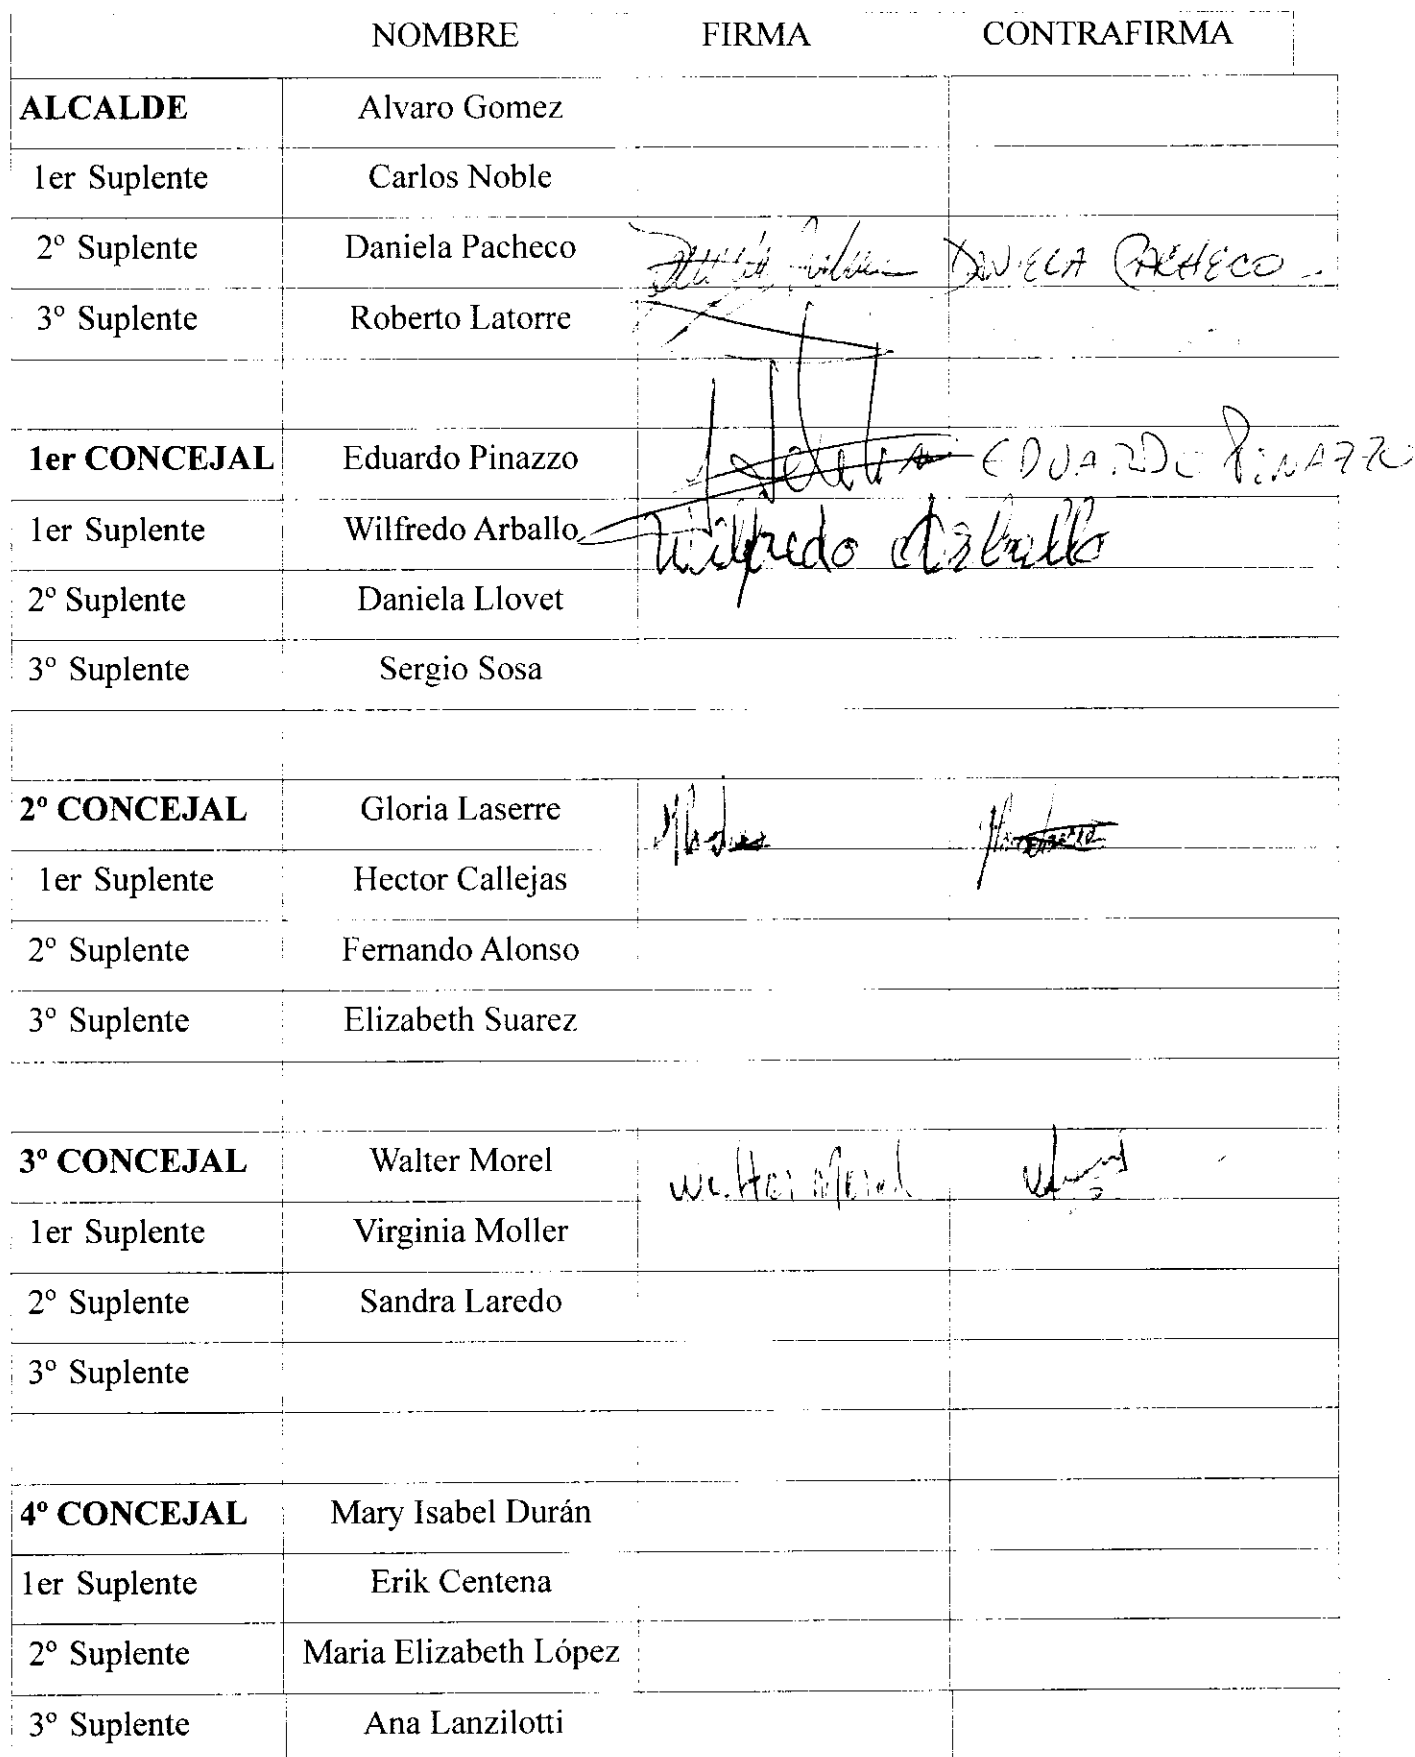 NOMBRE FIRMA CONTRAFIRMA
ALCALDE Alvaro Gomez
1er Suplente Carlos Noble
2º Suplente Daniela Pacheco DANIELA PACHECO
3º Suplente Roberto Latorre
1er CONCEJAL Eduardo Pinazzo EDUARDO PINAZZO
1er Suplente Wilfredo Arballo Wilfredo Arballo
2º Suplente Daniela Llovet
3º Suplente Sergio Sosa
2º CONCEJAL Gloria Laserre
1er Suplente Hector Callejas
2º Suplente Fernando Alonso
3º Suplente Elizabeth Suarez
3º CONCEJAL Walter Morel Walter Morel
1er Suplente Virginia Moller
2º Suplente Sandra Laredo
3º Suplente
4º CONCEJAL Mary Isabel Durán
1er Suplente Erik Centena
2º Suplente Maria Elizabeth López
3º Suplente Ana Lanzilotti